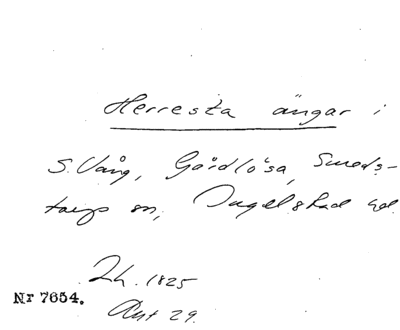 Herresta ängar i
S. Vång, Gårdlösa, Smeds-
torps sn, Ingelstad hd.
Lh. 1825
Nr 7654.
Akt 29.